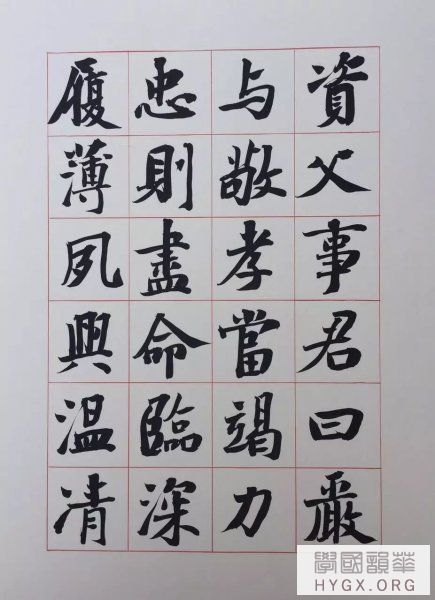 資父事君曰嚴
与敬孝當竭力
忠則盡命臨深
履薄夙興温凊
華韻國學
HYGX.ORG